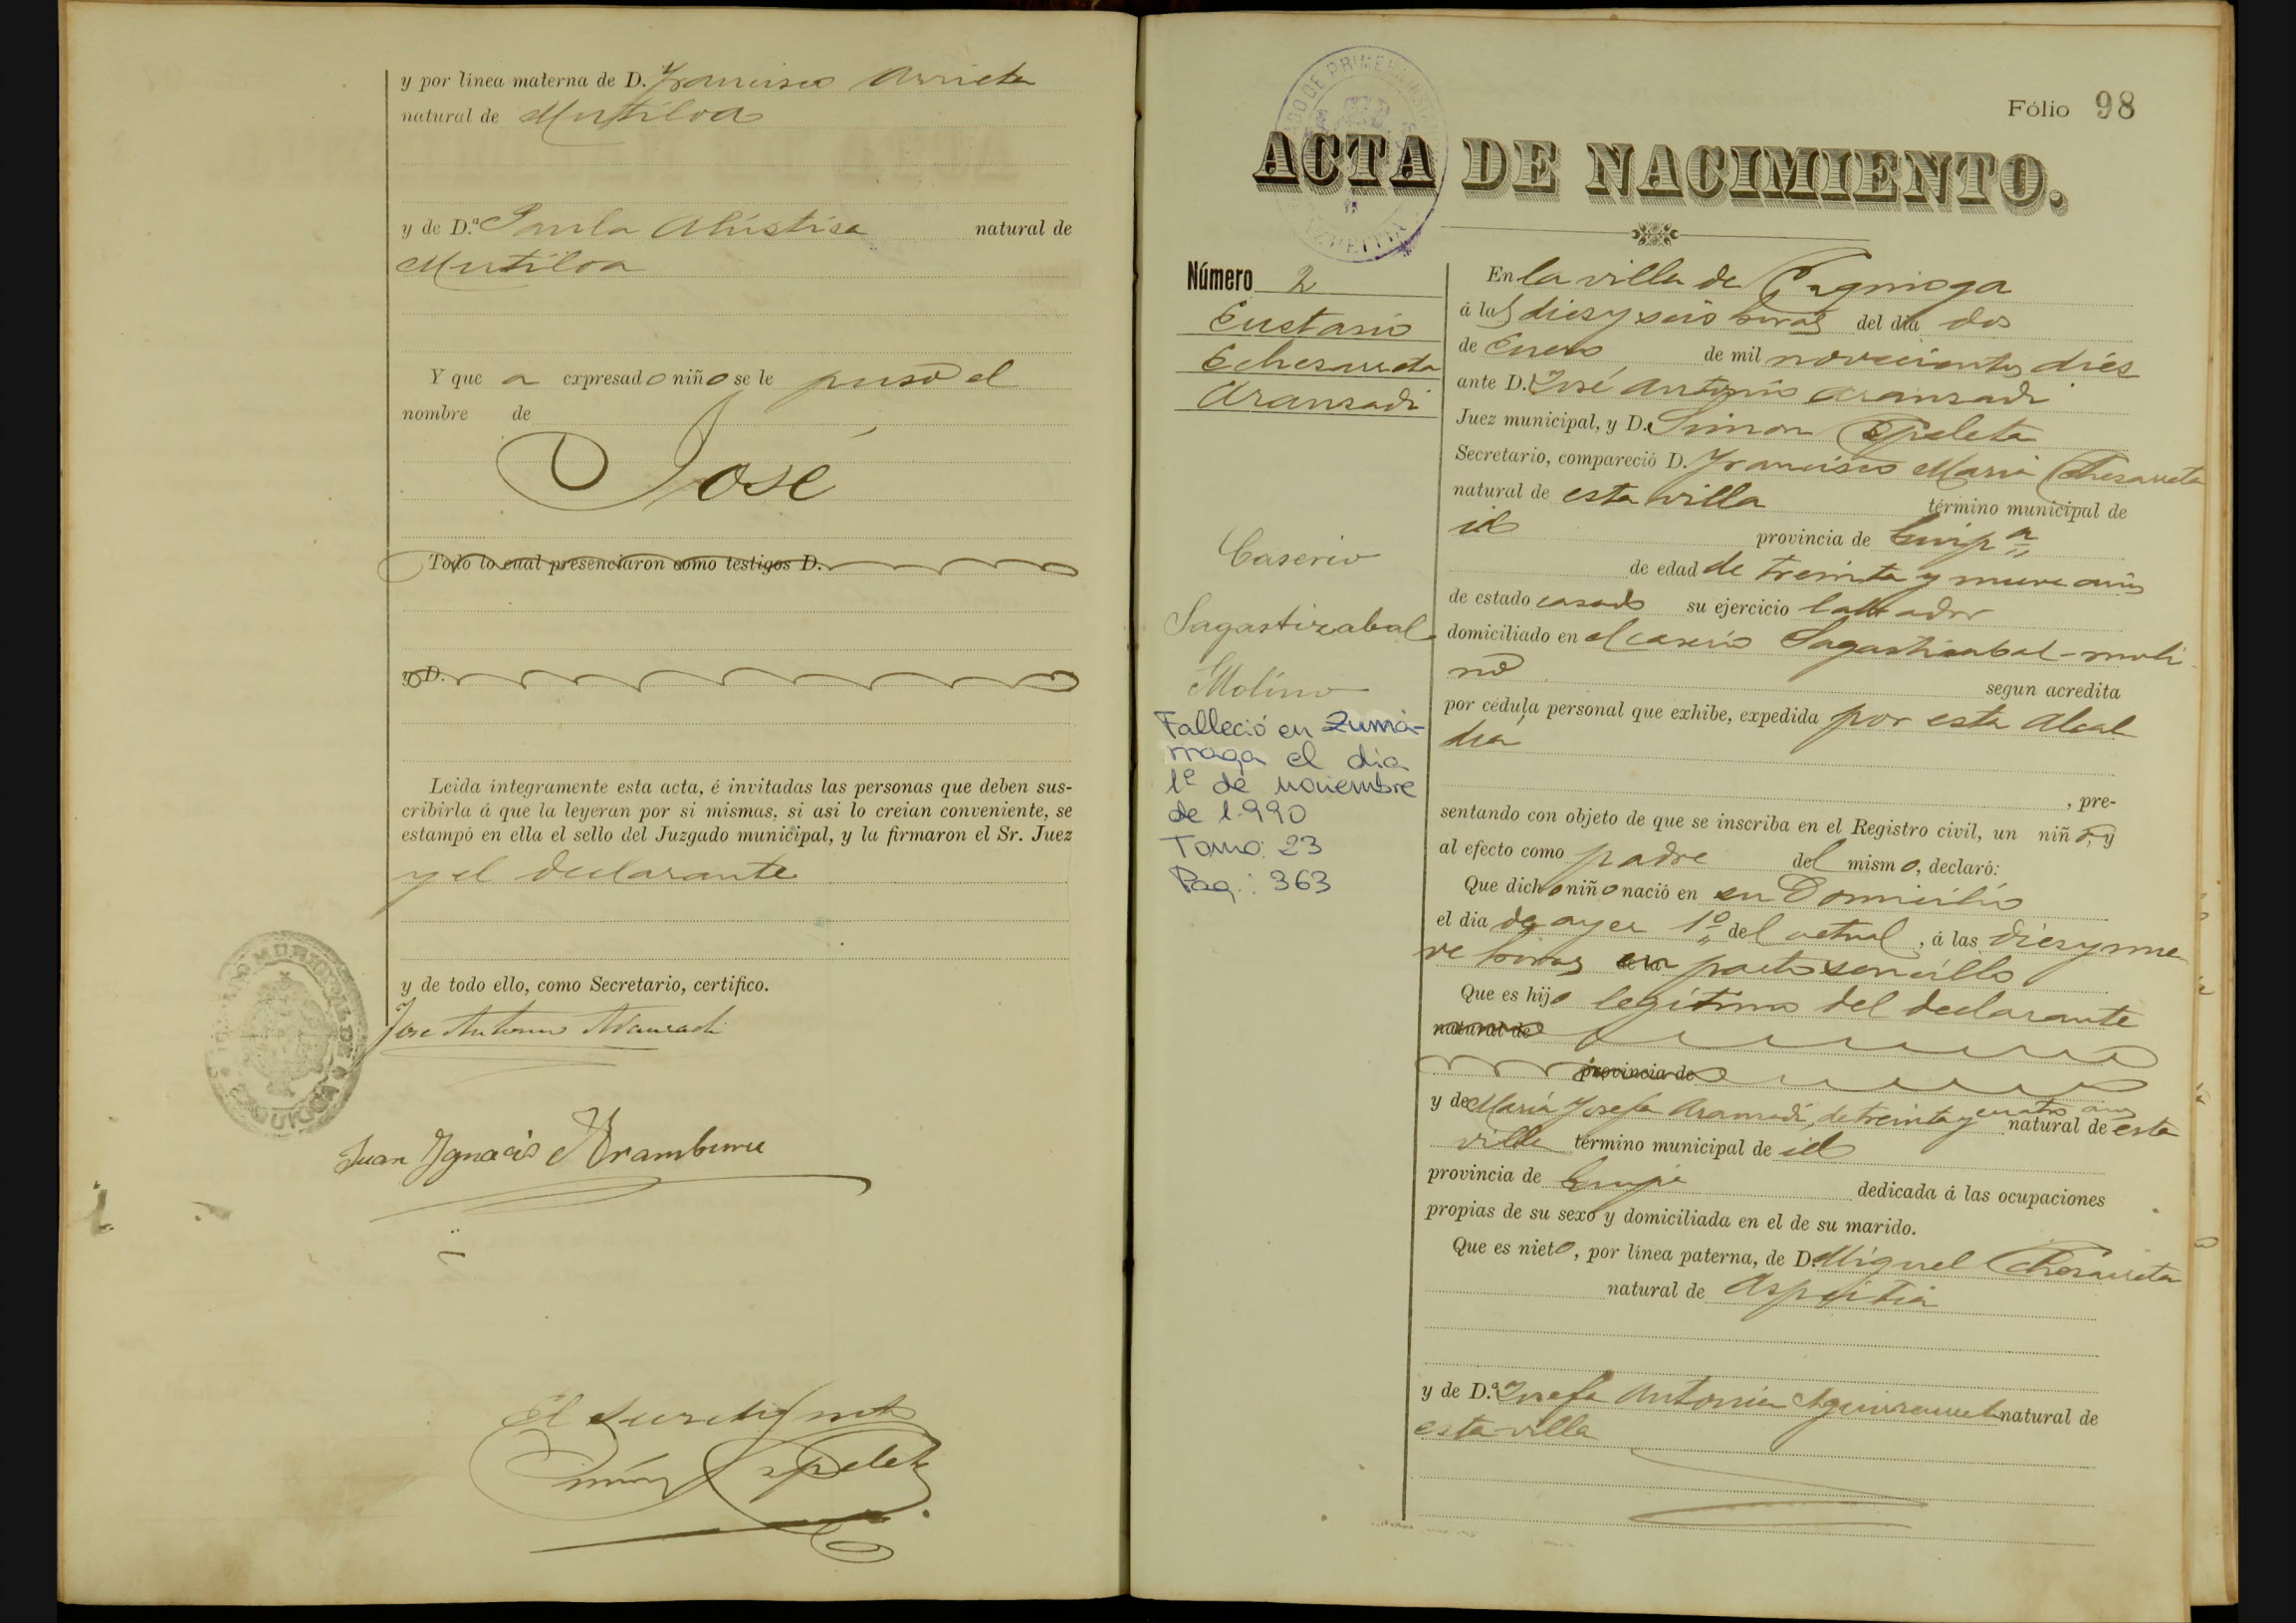 y por línea materna de D. Francisco Arrieta
natural de Mutiloa
y de D.ª Paula Alústisa natural de
Mutiloa
Y que a expresado niño se le puso el
nombre de
José
Todo lo cual presenciaron como testigos D.
y D.
Leida íntegramente esta acta, é invitadas las personas que deben sus-
cribirla á que la leyeran por si mismas, si asi lo creian conveniente, se
estampó en ella el sello del Juzgado municipal, y la firmaron el Sr. Juez
y el declarante
y de todo ello, como Secretario, certifico.
Jose Antonio Aranzadi
Juan Ygnacio Aramburu
El Secretario
Simón Ezpeleta
Fólio 98
ACTA DE NACIMIENTO.
Número 2
Eustasio
Echesarreta
Aransadi
Caserio
Sagastizabal
Molino
Falleció en Zumá-
rraga el dia
1º de noviembre
de 1.990
Tomo: 23
Pag.: 363
En la villa de Ezquioga
á las diesy seis horas del dia dos
de Enero de mil novecientos diés
ante D. José Antonio Aransadi
Juez municipal, y D. Simon Ezpeleta
Secretario, compareció D. Francisco Maria Echesarreta
natural de esta villa término municipal de
id provincia de Guipª
de edad de treinta y nueve años
de estado casado su ejercicio labrador
domiciliado en el caserío Sagastizabal-moli
no segun acredita
por cédula personal que exhibe, expedida por esta Alcal
dia
, pre-
sentando con objeto de que se inscriba en el Registro civil, un niño, y
al efecto como padre del mismo, declaró:
Que dicho niño nació en su Domicilio
el dia de ayer 1º del actual, á las diesynue
ve horas en parto sencillo
Que es hijo legítimo del declarante
natural de
provincia de
y de María Josefa Aransadi, de treinta y cuatro años natural de esta
villa término municipal de id
provincia de Guipª dedicada á las ocupaciones
propias de su sexo y domiciliada en el de su marido.
Que es nieto, por línea paterna, de D. Miguel Echesarreta
natural de Aspeitia
y de D.ª Josefa Antonia Aguirresarreta natural de
esta villa